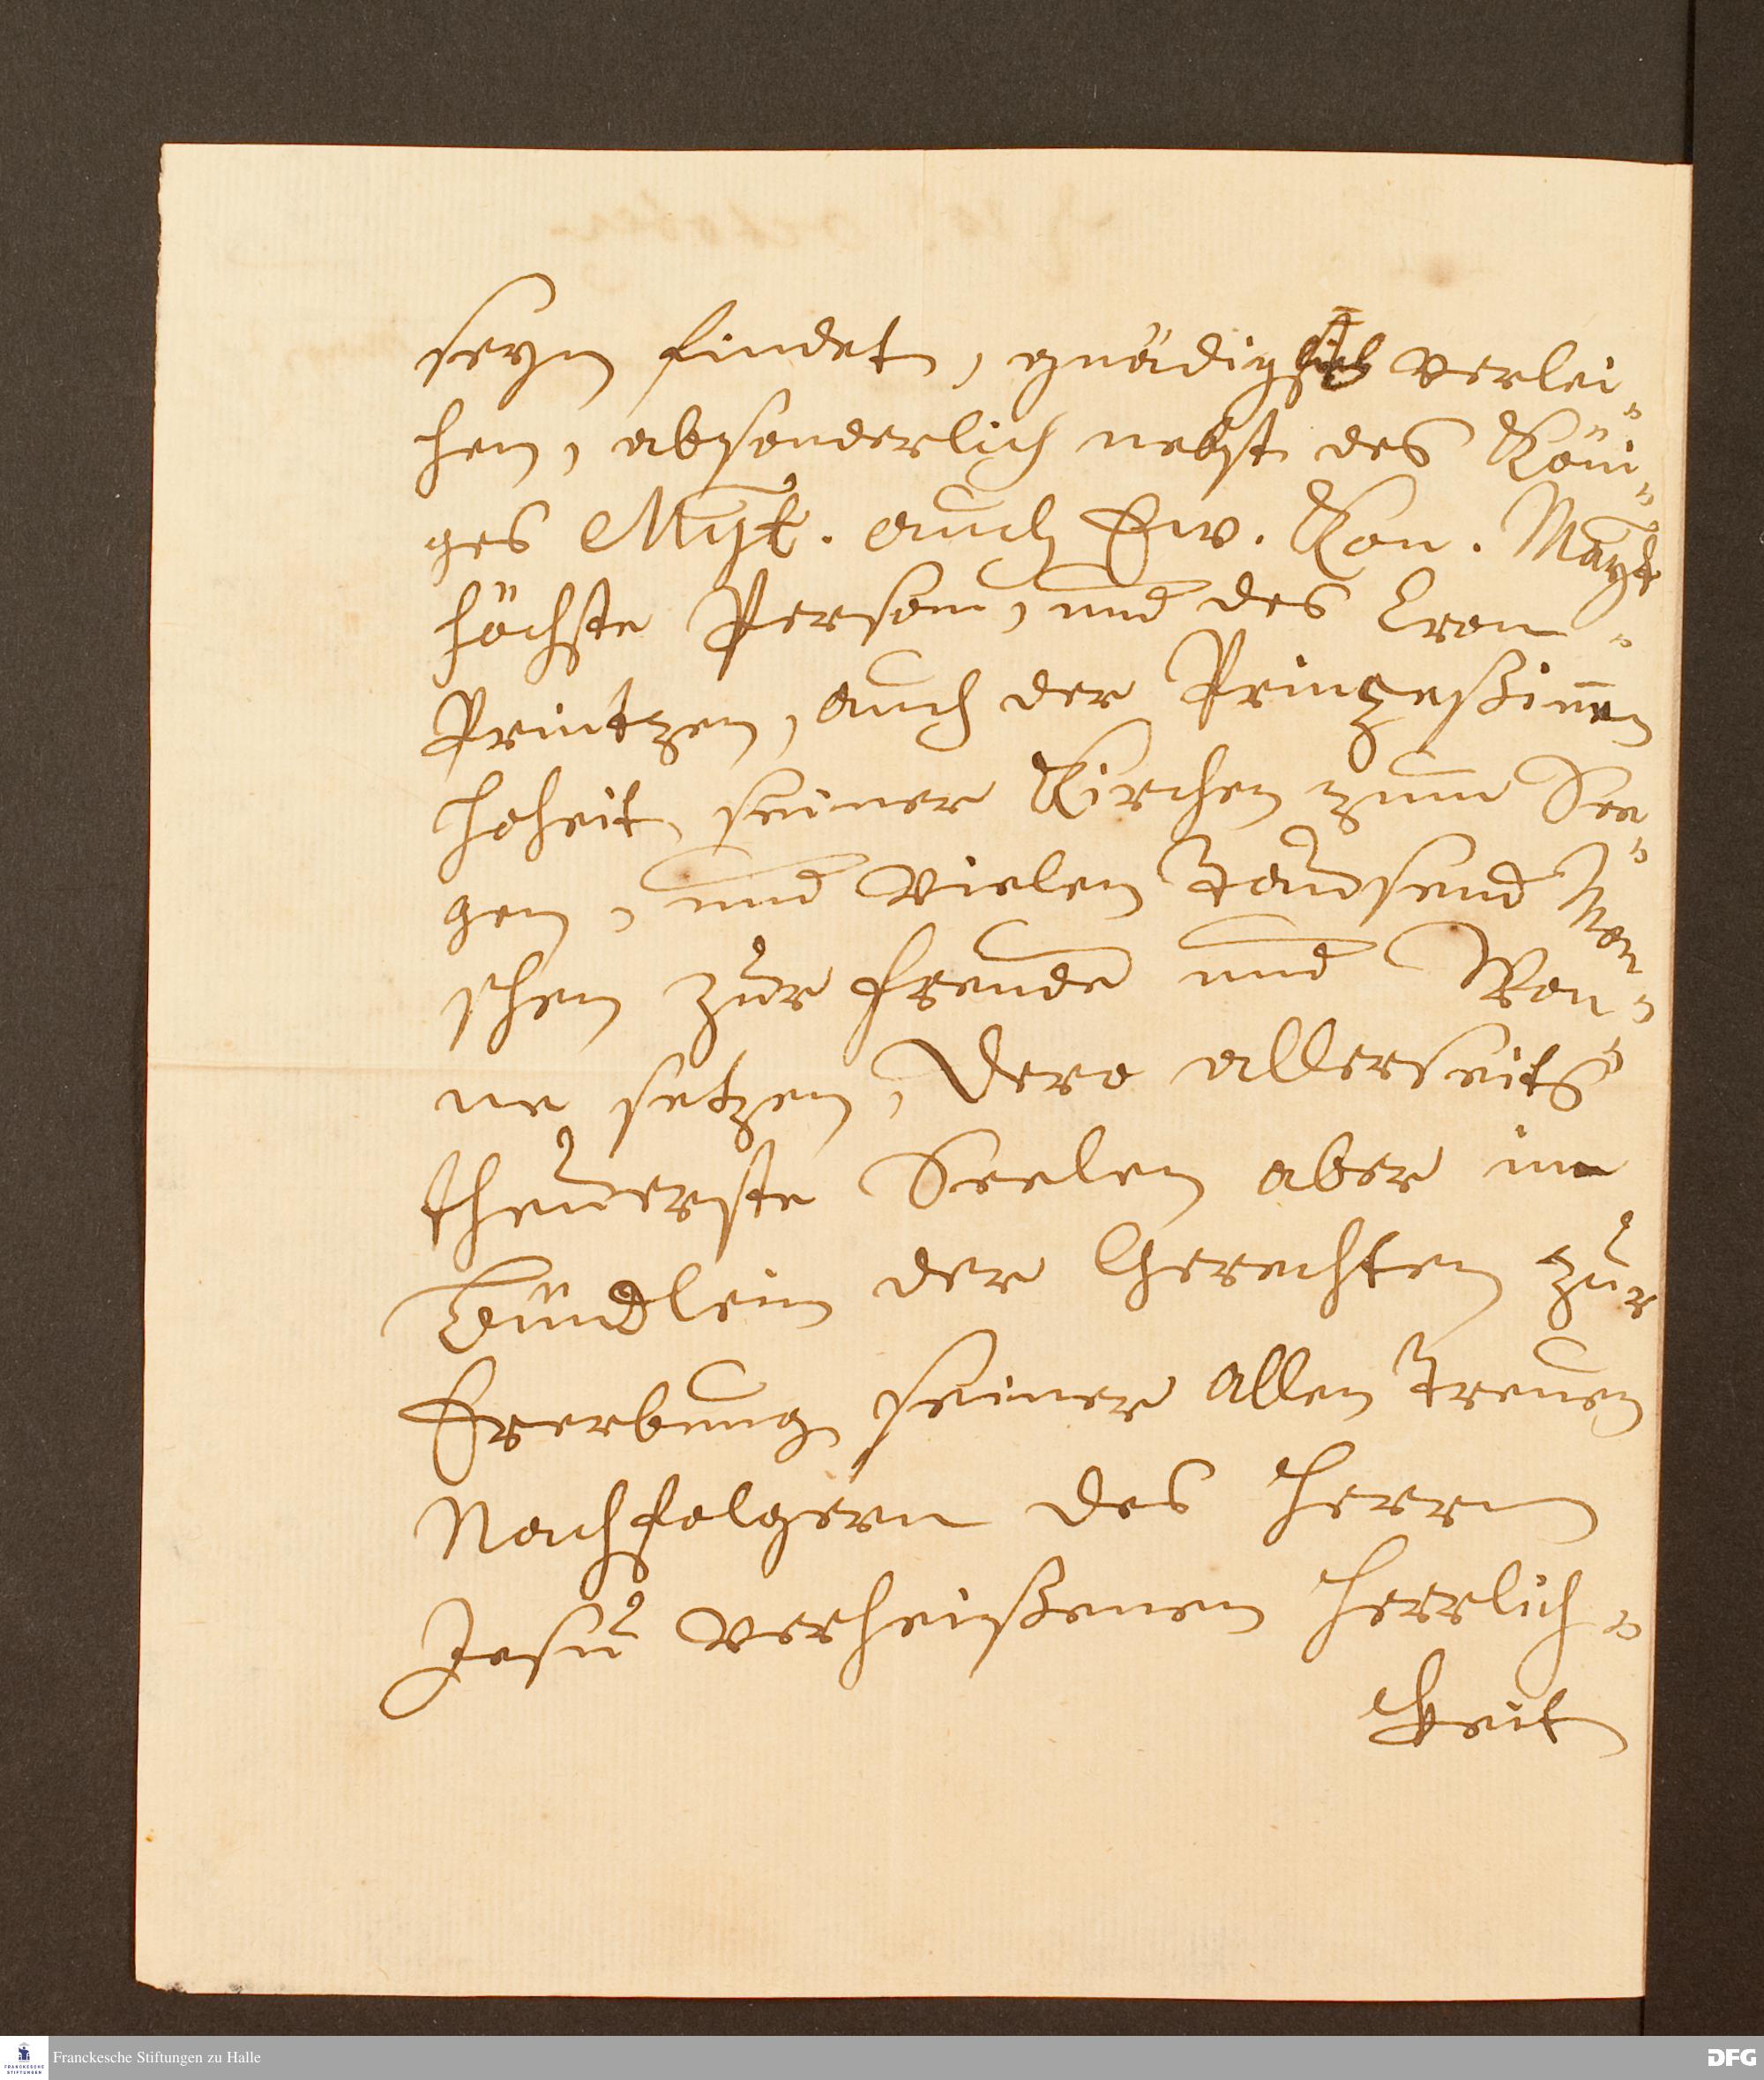 seyn findet, gnädigst verlei-
hen, absonderlich nebst des Köni-
ges Mayt. auch Ew. Kön. Mayt
höchste Person, und des Cron-
Printzen, auch der Prinzeßinnen
Hoheit, seiner Kirchen zum See-
gen, und vielen Tausend Men-
schen zur Freude und Won-
ne setzen, Dero allerseits
theuerste Seelen aber im
Bündlein der Gerechten zur
Ererbung seiner allen Treuen
Nachfolgern des Herrn
Jesu verheißenen Herrlich-
keit
Franckesche Stiftungen zu Halle
FRANCKESCHE
STIFTUNGEN
DFG